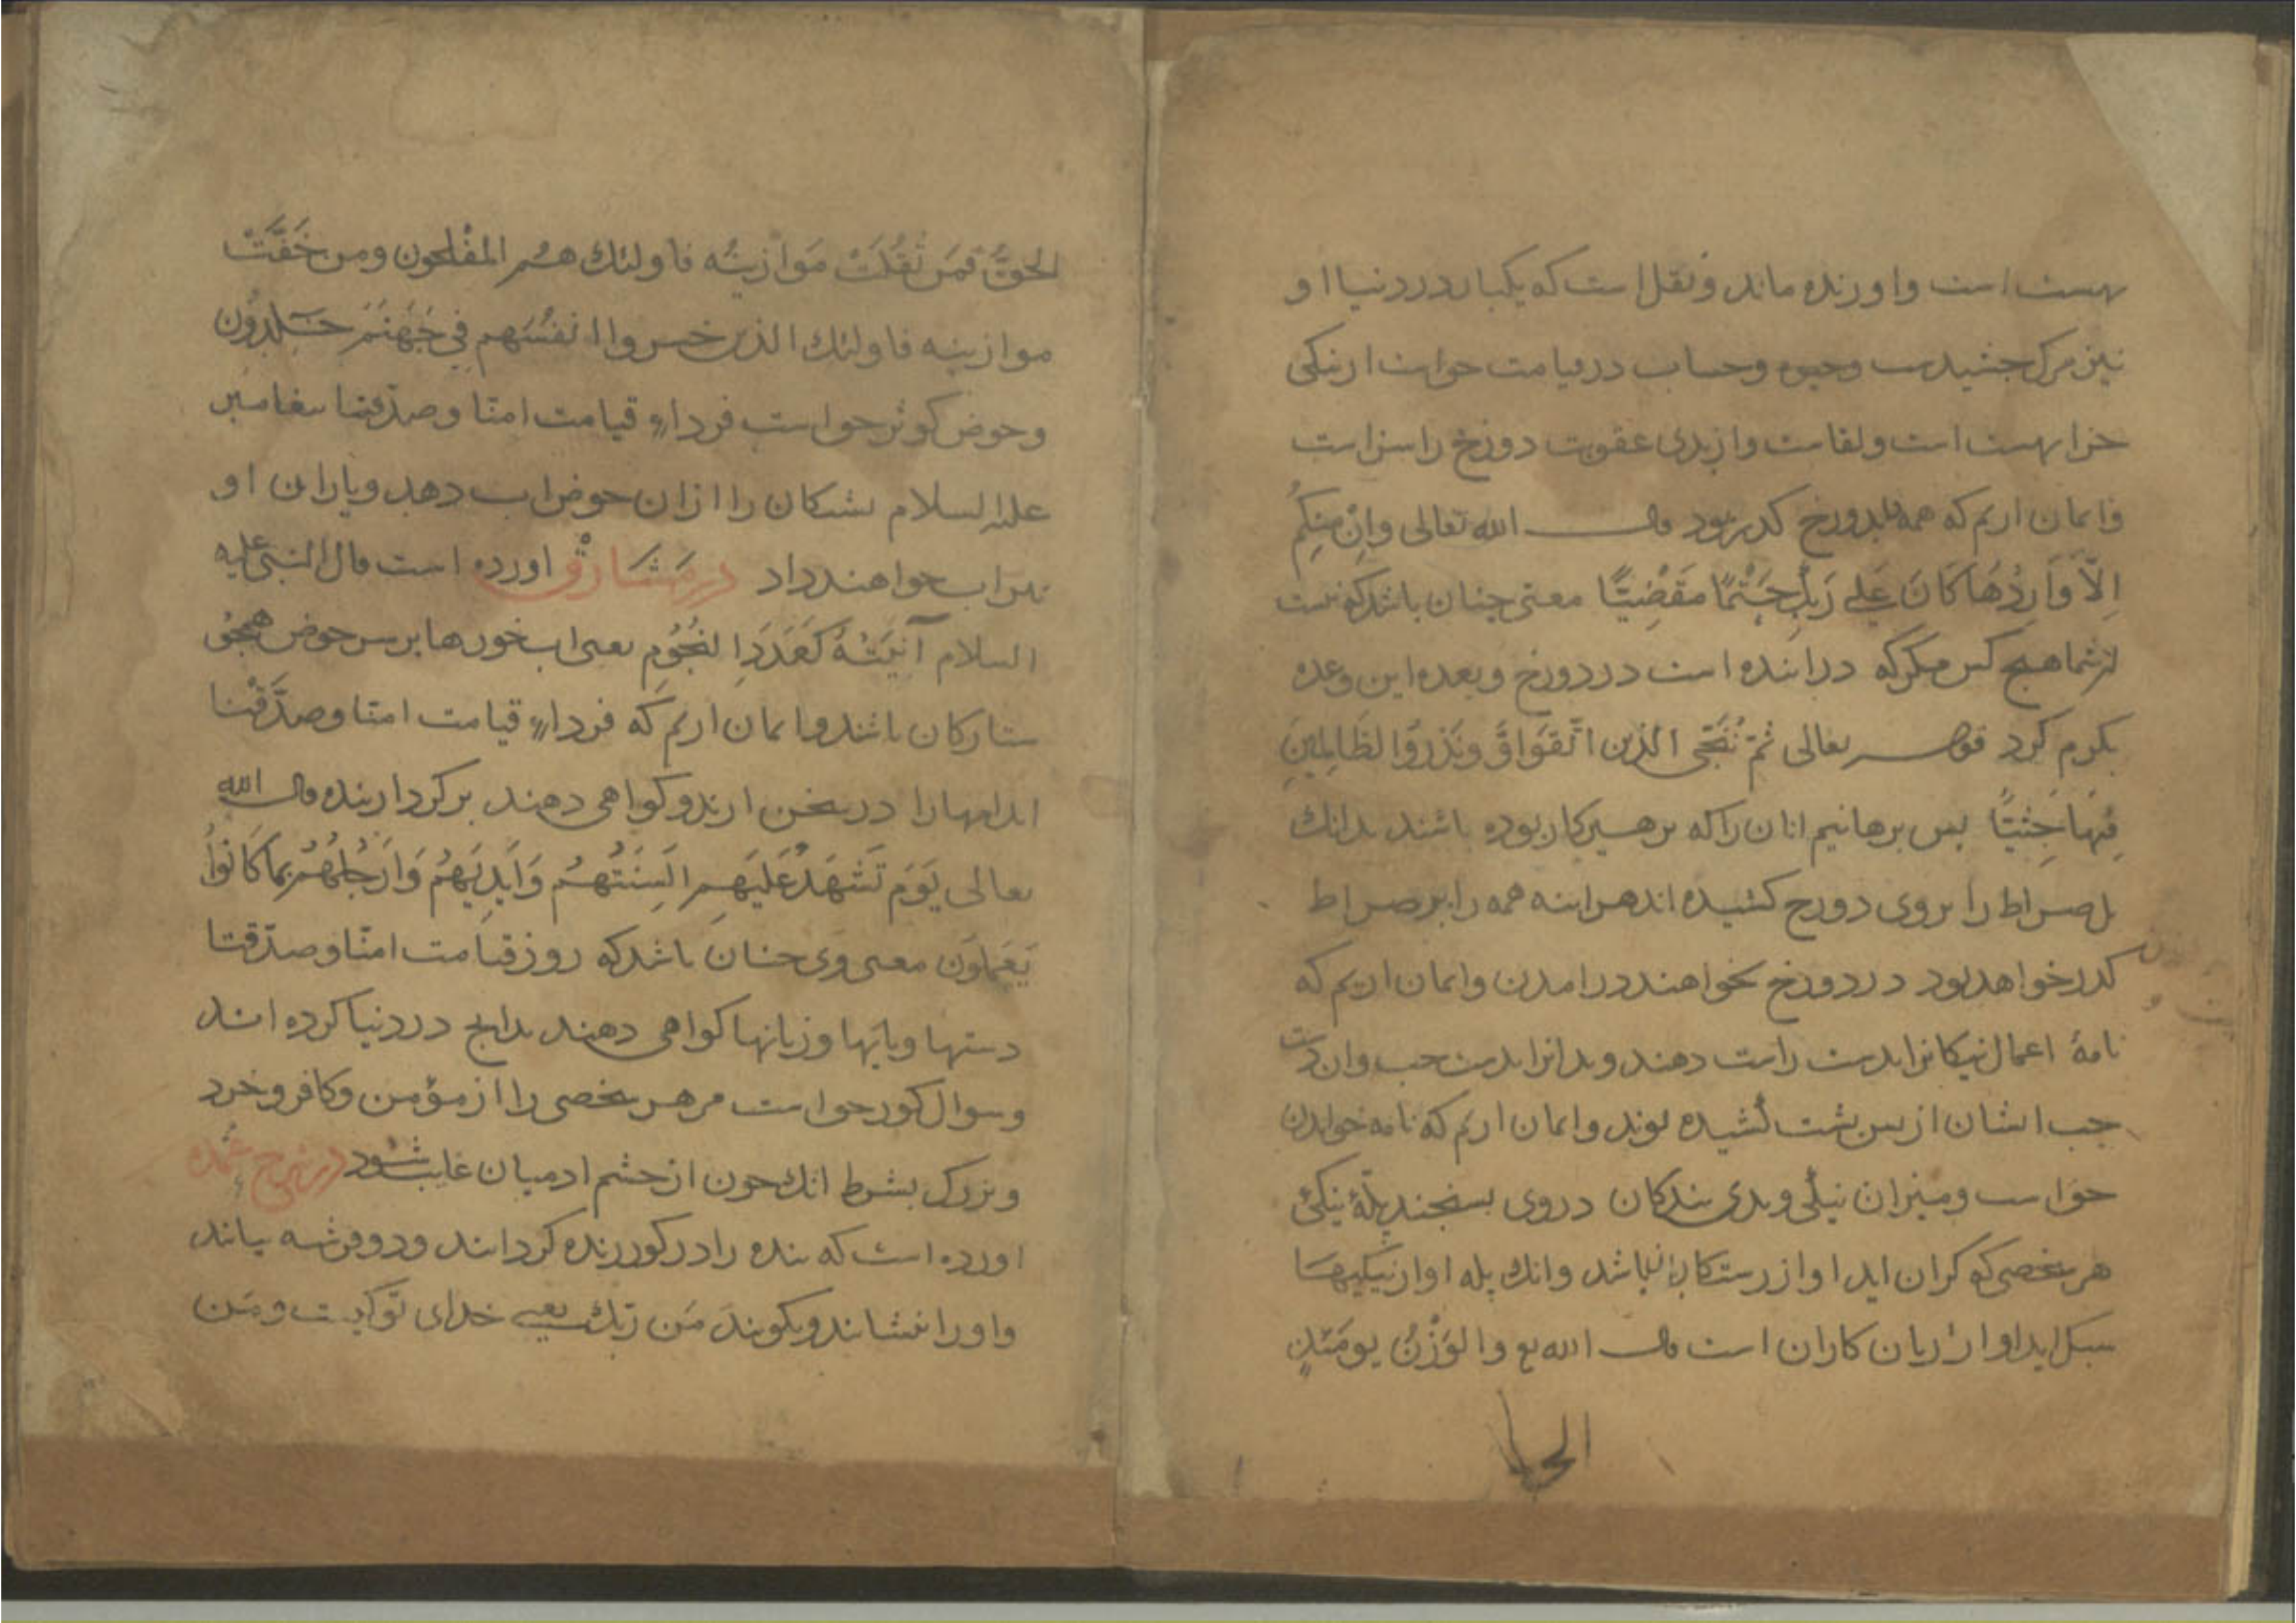 بهست است و او زنده ماند و نقل است که یکبار در دنیا او
نیز مرک جشیدست وحیوه وحساب در قیامت حواست از نیکی
جزا بهست است ولقاست واز بدی عقوبت دوزخ را سزاست
وایمان اریم که همه بدوزخ کدر بود قال الله تعالی وَاِنْ مِنکُمْ
اِلاّ وَارِدُهَا کَانَ عَلی رَبِّکَ حَتْمًا مَقْضِیًّا معنی جنان باشد که نیست
از شما هیج کس مکر که در اینده است در دوزخ وبعده این وعده
بکرم کرد قوله تعالی ثمّ نُنَجّی الذین اتّقَوا وَّنَذَرُ الظَالِمِینَ
فِیهَا جِثِیًّا بس برهانیم انان را که برهیزکار بوده باشند بدانک
بل صراط را بر وی دوزخ کشیده اند هراینه همه را بر صراط
کدر خواهد بود در دوزخ نخواهند درامدن وایمان اریم که
نامهٔ اعمال نیکانرا بدست راست دهند و بدانرا بدست جب وان دست
جب ایشان از بس بشت کشیده بوند وایمان اریم که نامه خواندن
حواست ومیزان نیکی وبدی بندکان در وی بسنجند بلهٔ نیکی
هر شخصی که کران اید او از رستکاران باشد وانک بله او از نیکیها
سبک اید او از زیان کاران است قال الله تع والوَزْنُ یومَئذٍ
الحق
الحقّ فمَن ثَقُلَتْ مَوَازینُه فاولئك هم المفْلحون ومن خَفَّتْ
موازینه فاولئك الذین خسروا انفُسَهم فِی جَهَنّمَ خَلِدُون
وحوض کوثر حواست فرداء قیامت امنّا وصدّقنا بیغامبر
علیه السلام تشنکان را ازان حوض اب دهد ویاران او
نیز اب خواهند داد در مَشَارِقْ اورده است قال النبی علیه
السلام آنِیَتُهُ کَعَدَدِ النُجُومِ یعنی اب خورها بر سر حوض همجو
ستارکان باشند وایمان اریم که فرداء قیامت امنّا وصدّقنا
اندامها را در سخن ارند وکواهی دهند بر کردار بنده قال الله
تعالی یَوَمَ تَشهَدُ عَلَیهِم اَلسِنَتُهُم وَاَیدِیهُم وَاَرْجُلُهُمْ بِمَا کَانُواْ
یَعمَلوُن معنی وی جنان باشد که روز قیامت امنّا وصدّقنا
دستها وبایها وزبانها کواهی دهند بدانج در دنیا کرده اند
وسوال کور حواست مر هر شخصی را از مؤمن وکافر وخرد
وبزرک بشرط انك جون از جشم ادمیان غایب شود در شرح عُمده
اورده است که بنده را در کور زنده کردانند ودو فرشته بیایند
واو را بنشانند وبکویند مَن ربّك یعنی خدای تو کیست ومَن